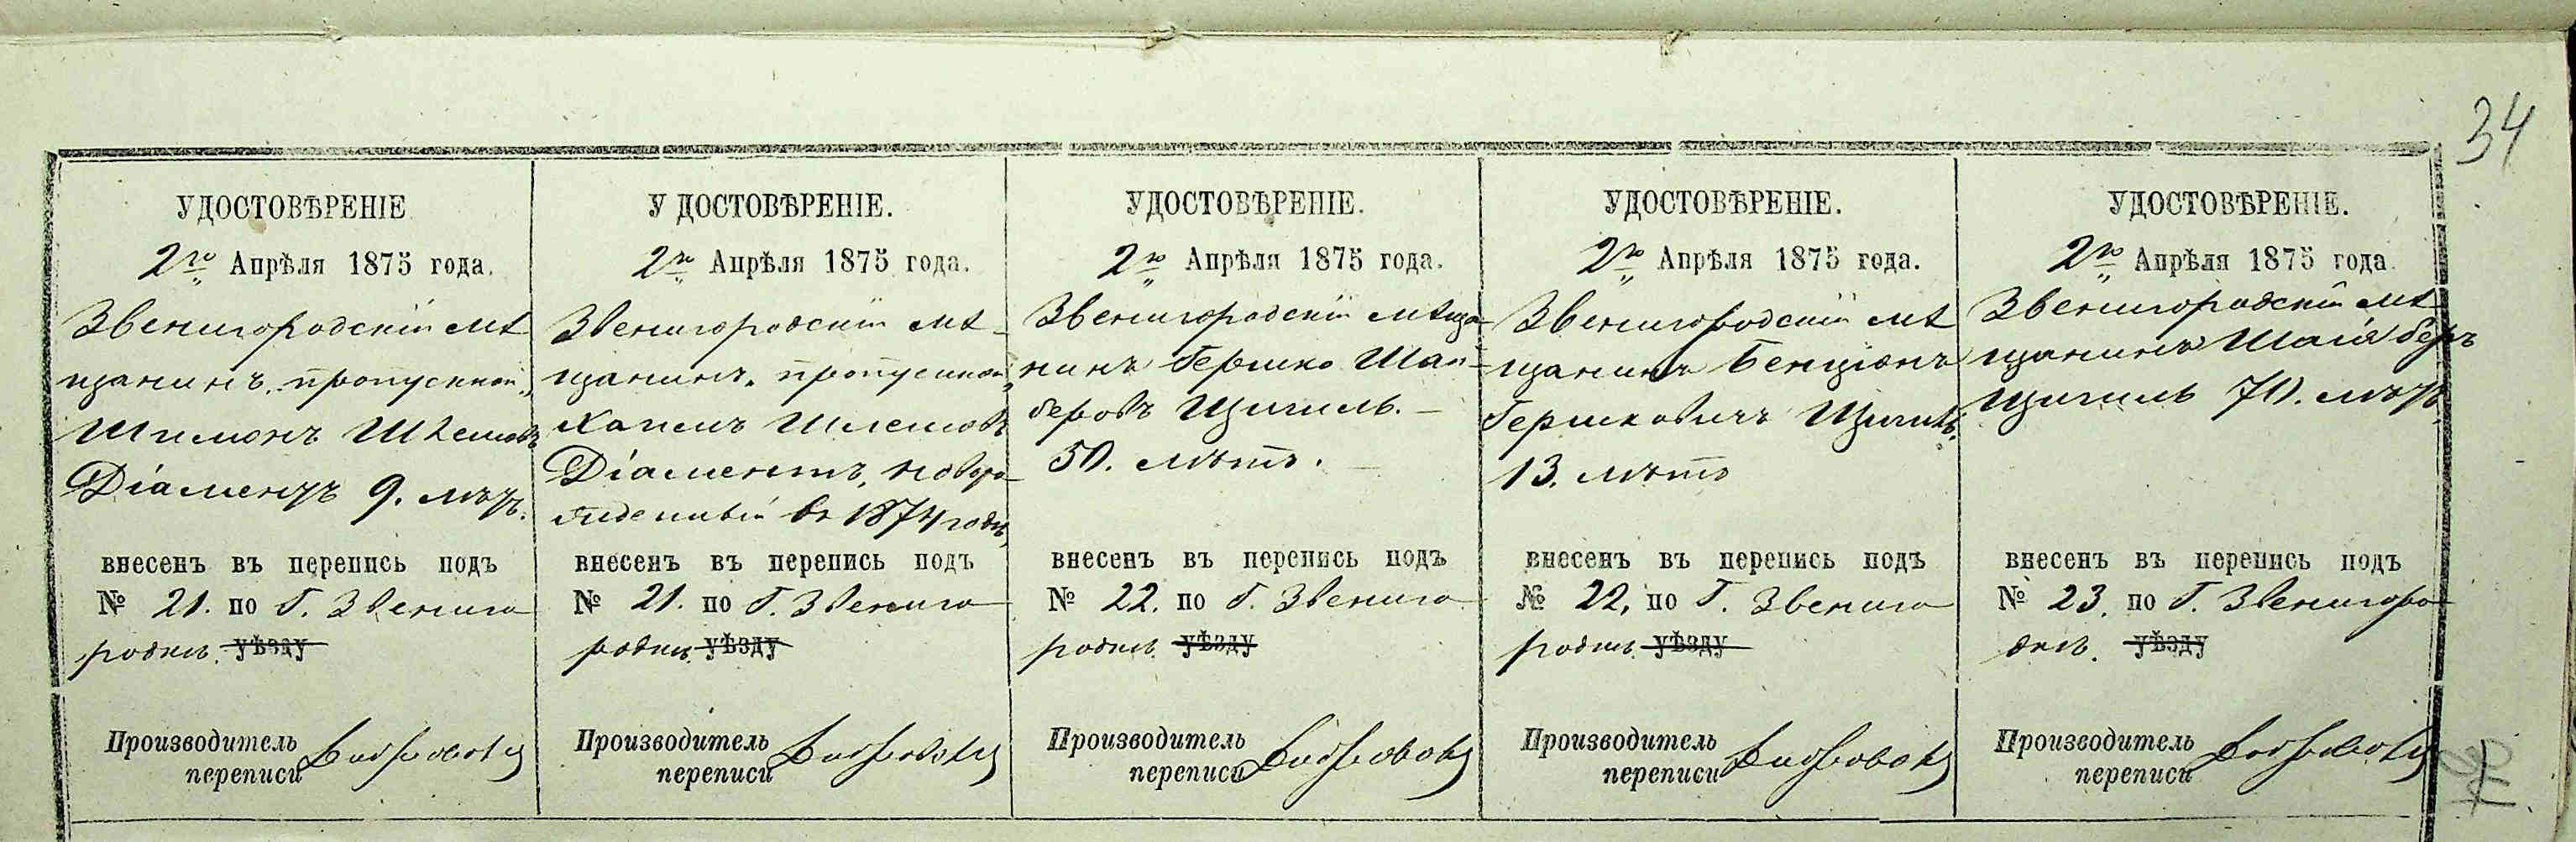 34
УДОСТОВѢРЕНІЕ
2го Апрѣля 1875 года.
Звенигородскій мѣ
щанинъ, пропускной,
Шимонъ Шлемовъ
Діаментъ 9. лѣтъ.
внесенъ въ перепись подъ
№ 21. по Г. Звениго
родкѣ. уѣзду
Производитель
переписи
УДОСТОВѢРЕНІЕ.
2го Апрѣля 1875 года.
Звенигородскій мѣ-
щанинъ, пропускной,
Шлемовъ
Діаментъ, новоро-
жденный въ 1874 годѣ,
внесенъ въ перепись подъ
№ 21. по Г. Звениго
родкѣ. уѣзду
Производитель
переписи
УДОСТОВѢРЕНІЕ.
2го Апрѣля 1875 года.
Звенигородскій мѣща-
нинъ Гершко Шаи-
беровъ Щигиль. —
50. лѣтъ. —
внесенъ въ перепись подъ
№ 22. по Г. Звениго
родкѣ. уѣзду
Производитель
переписи
УДОСТОВѢРЕНІЕ.
2го Апрѣля 1875 года.
Звенигородскій мѣ
щанинъ Бенціонъ
Гершковичъ Щигиль.
13. лѣтъ
внесенъ въ перепись подъ
№ 22. по Г. Звениго
родкѣ. уѣзду
Производитель
переписи
УДОСТОВѢРЕНІЕ.
2го Апрѣля 1875 года.
Звенигородскій мѣ
щанинъ Шаія Беръ
Щигиль 70. лѣтъ
внесенъ въ перепись подъ
№ 23. по Г. Звенигоро
дкѣ. уѣзду
Производитель
переписи